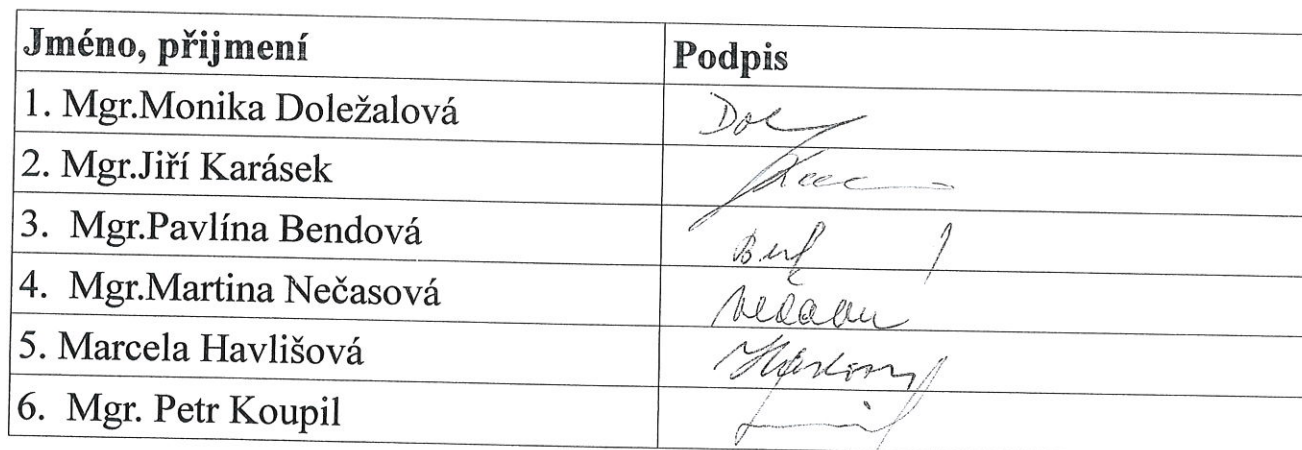 Jméno, přijmení Podpis
1. Mgr.Monika Doležalová
2. Mgr.Jiří Karásek
3. Mgr.Pavlína Bendová
4. Mgr.Martina Nečasová
5. Marcela Havlišová
6. Mgr. Petr Koupil